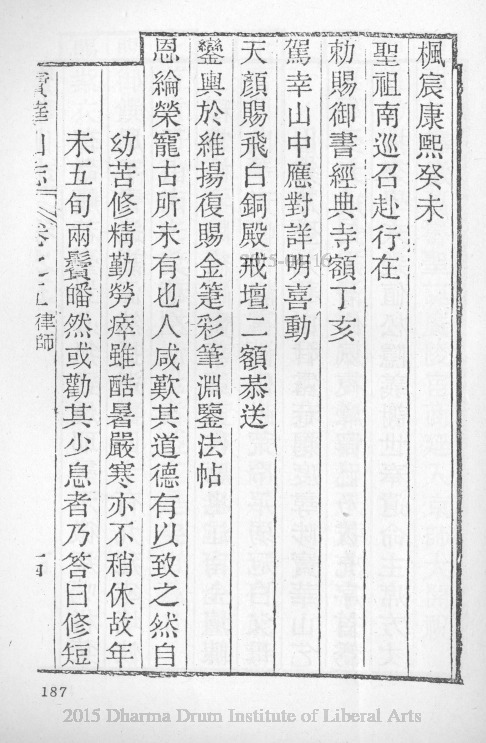 楓宸康熙癸未
聖祖南巡召赴行在
勅賜御書經典寺額丁亥
駕幸山中應對詳明喜動
天顏賜飛白銅殿戒壇二額恭送
鑾輿於維揚復賜金箑彩筆淵鑒法帖
恩綸榮寵古所未有也人咸歎其道德有以致之然自
幼苦修精勤勞瘁雖酷暑嚴寒亦不稍休故年
未五旬兩鬢皤然或勸其少息者乃答曰修短
寶華山志 卷之五 律師
187
2015 Dharma Drum Institute of Liberal Arts